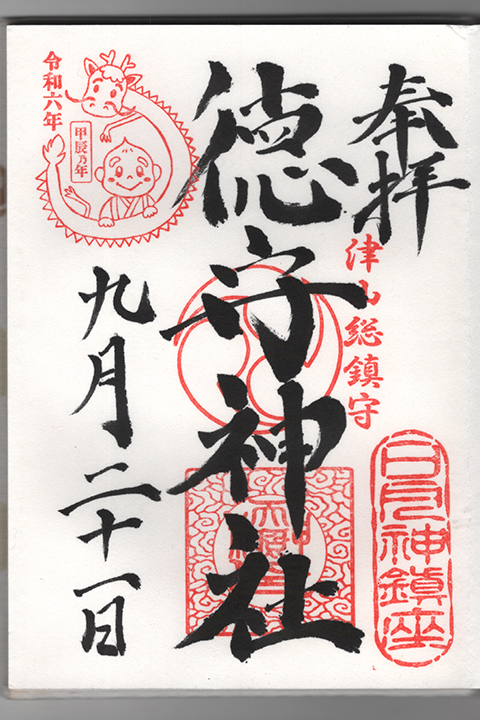 奉拝
津山総鎮守
日月神鎮座
徳守神社
令和六年
甲辰乃年
九月二十一日